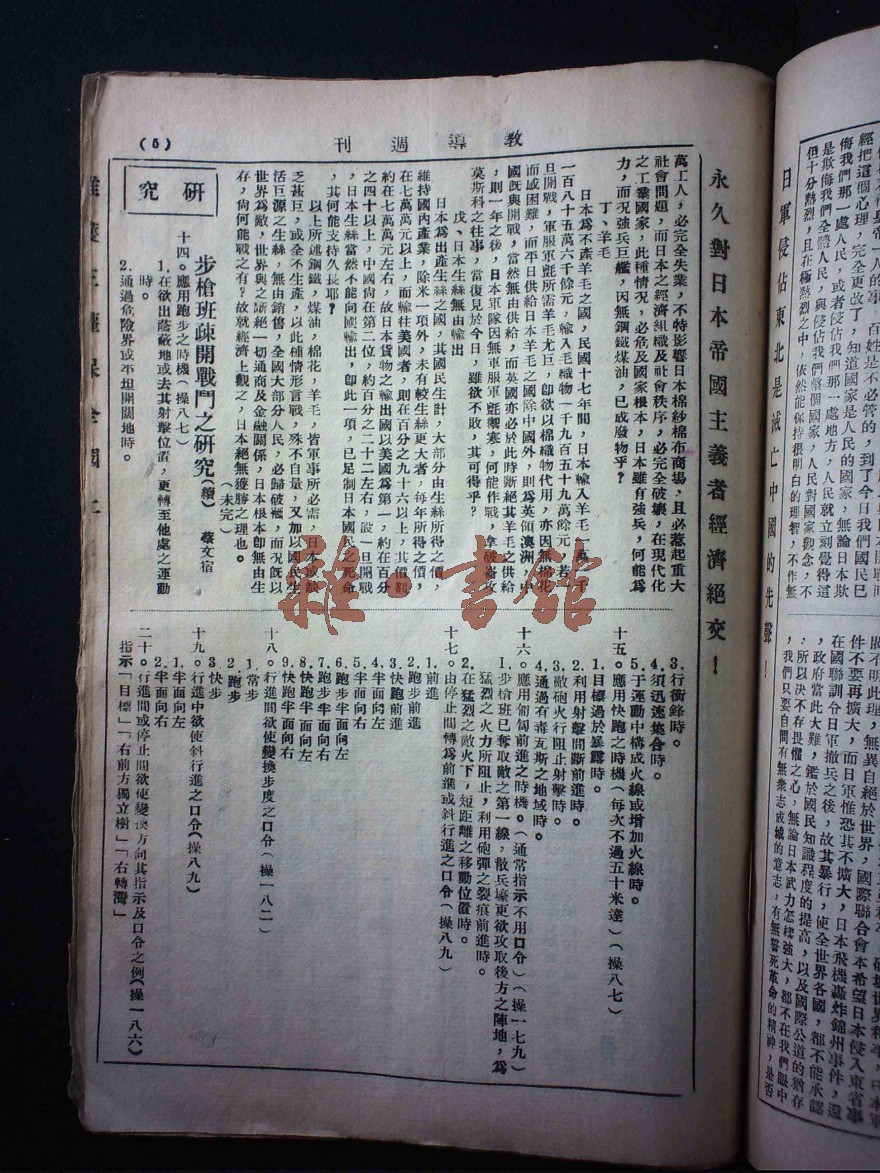 刊週導教
(6)
永久對日本帝國主義者經濟絕交！
萬工人，必完全失業，不特影響日本棉紗棉布商場，且必惹起重大
社會問題，而日本之經濟組織及社會秩序，必完全破壞，在現代化
之工業國家，此種情況，必危及國家根本，日本雖有強兵，何能爲
力，而況強兵巨艦，因無鋼鐵煤油，已成廢物乎？
丁、羊毛
日本爲不產羊毛之國，民國十七年間，日本輸入羊毛一萬一千
一百八十五萬六千餘元，輸入毛織物一千九百五十九萬餘元，若一
旦開戰，軍服軍氈所需羊毛尤巨，卽欲以棉織物代用，亦因無棉花
而感困難，而平日供給日本羊毛之國除中國外，則爲英領澳洲，中
國旣與開戰，當然無由供給，而英國亦必於此時斷絕其羊毛之供給
，則一年之後，日本軍隊因無軍服軍氈禦寒，何能作戰，拿破崙攻
莫斯科之往事，當復見於今日，雖欲不敗，其可得乎？
戊、日本生絲無由輸出
日本爲出產生絲之國，其國民生計，大部分由生絲所得之價，
維持國內產業，除米一項外，未有較生絲更大者，每年所得之價，
在七萬萬元以上，而輸往美國者，則在百分之九十六以上，其價額
約在七萬萬元左右，故日本貨物之輸出國以美國爲第一，約在百分
之四十以上，中國尙在第二位，約百分之二十二左右，設一旦開戰
，日本生絲當然不能向國輸出，卽此一項，已足制日本國民之死命
，其何能支持久長耶？
以上所述鋼鐵，煤油，棉花，羊毛，皆軍事所必需，日本或缺
乏甚巨，或全不生產，以此種情形言戰，殊不自量，又加以國民生
活巨源之生絲，無由銷售，全國大部分人民，必歸破棍，而況旣以
世界爲敵，世界與之斷絕一切通商及金融關係，日本根本卽無由生
存，尙何能戰之有？故就經濟上觀之，日本絕無獲勝之理也。
（未完）
研究
步槍班疎開戰鬥之研究（續）　蔡文宿
十四。應用跑步之時機（操八七）
1.在欲出蔭蔽地或去其射擊位置，更轉至他處之運動
時。
2.通過危險界或平坦開闊地時。
3.行衝鋒時。
4.須迅速集合時。
5.于運動中構成火線或增加火線時。
十五。應用快跑之時機（每次不過五十米達）（操八七）
1.目標過於暴露時。
2.利用射擊間斷前進時。
3.敵砲火行阻止射擊時。
4.通過有毒瓦斯之地域時。
十六。應用匍匐前進之時機。（通常指示不用口令）（操一七九）
1.步槍班已奪取敵之第一線，散兵壕更欲攻取後方之陣地，爲
猛烈之火力所阻止，利用砲彈之裂痕前進時。
2.在猛烈之敵火下，短距離之移動位置時。
十七。由停止間轉爲前進或斜行進之口令（操八九）
1.前進
2.跑步前進
3.快跑前進
4.半面向左
5.半面向右
6.跑步半面向左
7.跑步半面向右
8.快跑半面向左
9.快跑半面向右
十八。行進間欲使變換步度之口令（操一八二）
1.常步
2.跑步
3.快步
十九。行進中欲使斜行進之口令（操八九）
1.半面向左
2.半面向右
二十。行進間或停止間欲使變換方向其指示及口令之例（操一八六）
指示「目標」「右前方獨立樹」「右轉灣」
日軍侵佔東北是滅亡中國的先聲！
經把這個心理，完全更改了，知道國家是人民的國家，無論日本欺
侮我們那一處人民，或者侵佔我們那一處地方，人民就立刻覺得這
是欺侮我們全體人民，與侵佔我們整個國家，人民對國家觀念，不
但十分熱烈，且在極熱烈之中，依然能保持很明白的理智，不作無
件不要再擴大，而日軍惟恐其不擴大，日本飛機轟炸錦州事件，還
在國聯訓令日軍撤兵之後，故其暴行，使全世界各國，都不能承認
，政府當此大難，鑑於國民知識程度的提高，以及國際公道的猶存
，所以決不存畏懼之心，無論日本武力怎樣強大，都不在我們眼中
，我們只要自問有無衆志成城的意志，有無誓死革命的精神，是否
雜·書館